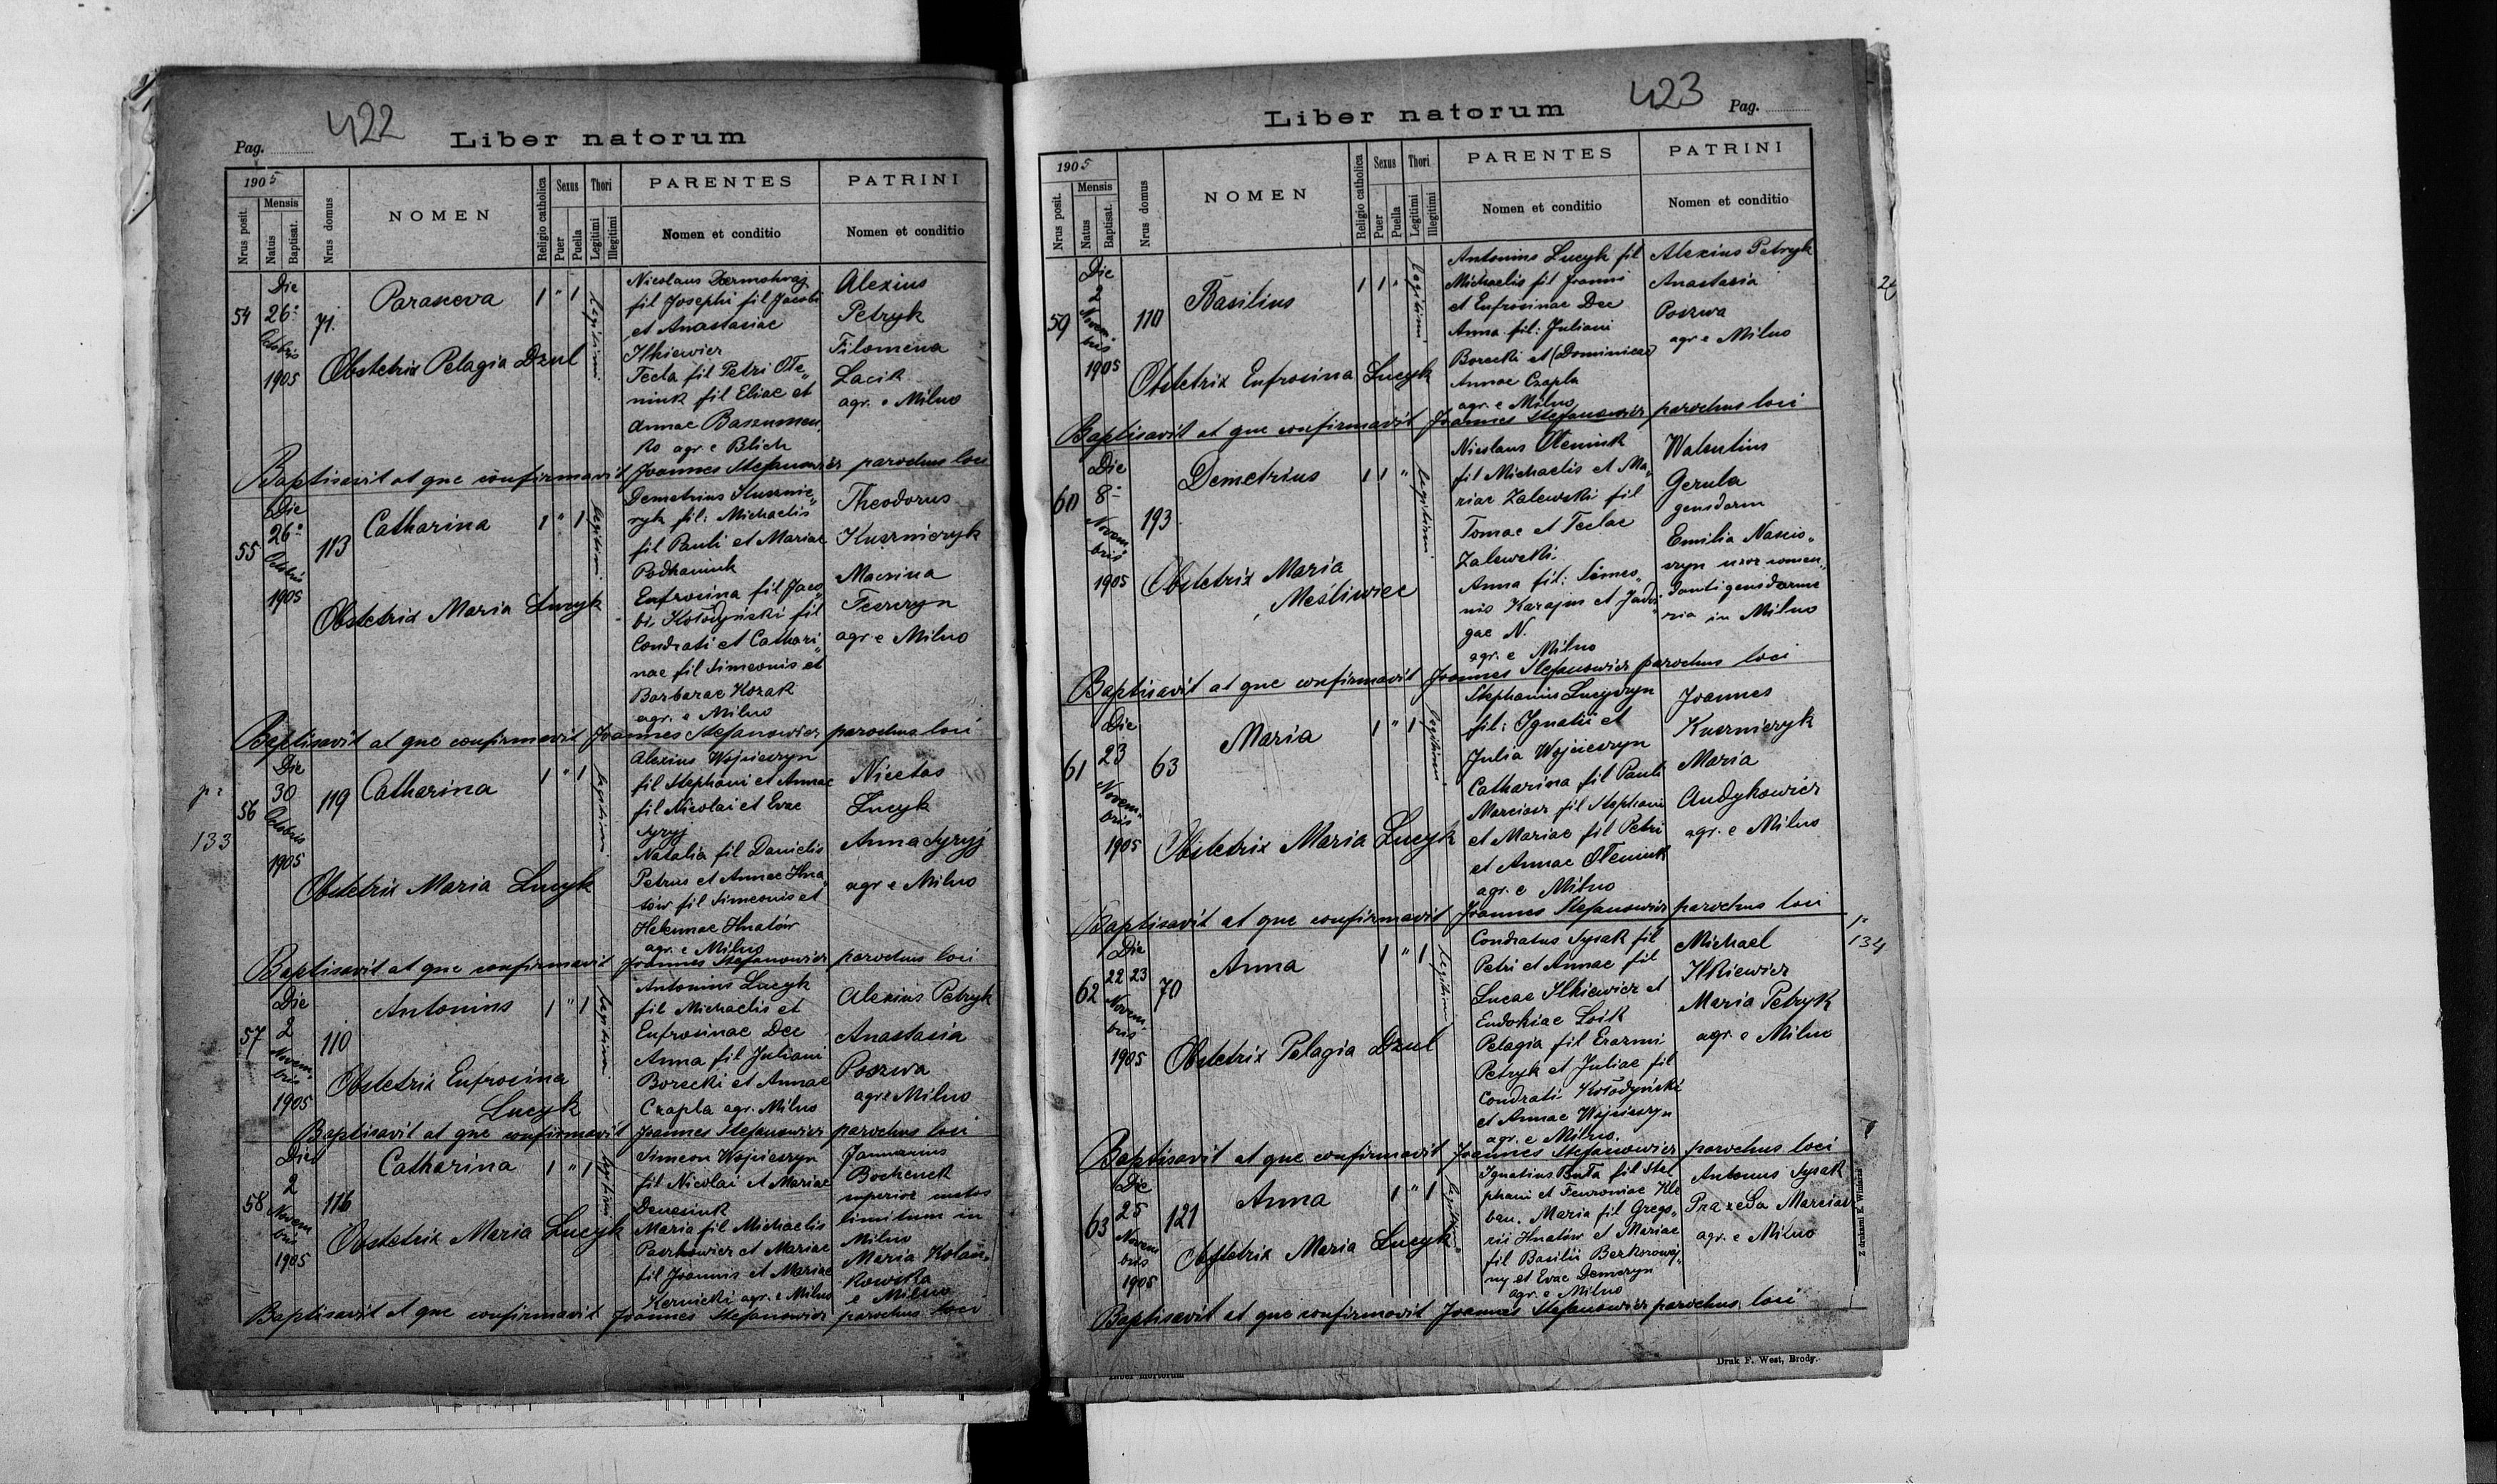 422
Pag.
Liber natorum
1905
Nrus posit.
Mensis
Natus
Baptisat.
Nrus domus
NOMEN
Religio catholica
Sexus
Puer
Puella
Thori
Legitimi
Illegitimi
PARENTES
Nomen et conditio
PATRINI
Nomen et conditio
54
Die
26
Octobris
1905
71.
Parasceva
1 " 1
Legitimi
Obstetrix Pelagia Dzul
Nicolaus
fil Josephi fil Jacobi
et Anastasiae
Ilkiewicz
Tecla fil Petri Ołe„
niuk fil Eliae et
Annae
agr e Blich
Alexius
Petryk
Filomena
Lacik
agr. e Milno
Baptisavit at que confirmavit Joannes Stefanowicz parochus loci
55
Die
26
Octobris
1905
113
Catharina
1 " 1
legitimi
Obstetrix Maria Lucyk
Demetrius Kusznie„
ryk fil: Michaelis
fil Pauli et Mariae
Podhaniuk
Eufrosina fil Jaco„
bi Kołodyński fil
Condrati et Cathari„
nae fil Simeonis et
Barbarae Kozak
agr. e Milno
Theodorus
Kusznieryk
Macrina
agr e Milno
Baptisavit at que confirmavit Joannes Stefanowicz parochus loci
133
56
Die
30
Octobris
1905
119
Catharina
1 " 1
legitimi
Obstetrix Maria Lucyk
Alexius Wojcieszyn
fil Stephani et Annae
fil Nicolai et Evae
Syryj
Natalia fil Danielis
Petrus et Annae Hna„
tów fil Simeonis et
Helennae Hnatów
agr. e Milno
Nicetas
Lucyk
Anna Syryj
agr e Milno
Baptisavit at que confirmavit Joannes Stefanowicz parochus loci
57
Die
2
Novem„
bris
1905
110
Antonius
1 " 1
legitimi
Obstetrix Eufrosina
Lucyk
Antonius Lucyk
fil Michaelis et
Eufrosinae Dec
Anna fil Juliani
Borecki et Annae
Czapla agr. Milno
Alexius Petryk
Anastasia
Poszwa
agr e Milno
Baptisavit at que confirmavit Joannes Stefanowicz parochus loci
58
Die
2
Novem
bris
1905
116
Catharina
1 " 1
legitimi
Obstetrix Maria Lucyk
Simeon Wojcieszyn
fil Nicolai et Mariae
Denesiuk
Maria fil Michaelis
Paszkowicz et Mariae
fil Joannis et Mariae
Kernicki agr. e Milno
Januarius
Bochenek
superior custos
limitum in
Milno
Maria Kolań„
kowska
e Milno
Baptisavit at que confirmavit Joannes Stefanowicz parochus loci
423
Liber natorum
Pag.
1905
Nrus posit.
Mensis
Natus
Baptisat.
Nrus domus
NOMEN
Religio catholica
Sexus
Puer
Puella
Thori
Legitimi
Illegitimi
PARENTES
Nomen et conditio
PATRINI
Nomen et conditio
59
Die
2
Novem„
bris
1905
110
Basilius
1 1 "
Legitimi
Obstetrix Eufrosina Lucyk
Antonius Lucyk fil
Michaelis fil Joanni
et Eufrosinae Dec
Anna fil: Juliani
Borecki et (Dominicae)
Annae Czapla
agr. e Milno
Alexius Petryk
Anastasia
Poszwa
agr e Milno
Baptisavit at que confirmavit Joannes Stefanowicz parochus loci
60
Die
8
Novem„
bris
1905
193
Demetrius
1 1 "
legitimi
Obstetrix Maria
Meśliwiec
Nicolaus Ołeniuk
fil Michaelis et Ma„
riae Zalewski fil
Tomae et Teclae
Zalewski
Anna fil: Simeo„
nis Karajm et Jadvi„
gae N.
agr. e Milno
Walentius
Gerula
gensdarm
Emilia
uxor comen„
danti gensdarme
ria in Milno
Baptisavit at que confirmavit Joannes Stefanowicz parochus loci
61
Die
23
Novem„
bris
1905
63
Maria
1 " 1
legitimi
Obstetrix Maria Lucyk
Stephanus Lucyszyn
fil: Ignatii et
Julia Wojcieszyn
Catharina fil Pauli
Marciasz fil Stephani
et Mariae fil Petri
et Annae Ołeniuk
agr. e Milno
Joannes
Kusznieryk
Maria
Andykowicz
agr. e Milno
Baptisavit at que confirmavit Joannes Stefanowicz parochus loci
134
62
Die
22 23
Novem„
bris
1905
70
Anna
1 " 1
legitimi
Obstetrix Pelagia Dzul
Condratus Sysak fil
Petri et Annae fil
Lucae Ilkiewicz et
Eudokiae Loik
Pelagia fil Erazmi
Petryk et Juliae fil
Condrati Kołodyński
et Annae Wojcieszyn
agr. e Milno.
Michael
Ilkiewicz
Maria Petryk
agr. e Milno
Baptisavit at que confirmavit Joannes Stefanowicz parochus loci
63
Die
25
Novem
bris
1905
121
Anna
1 " 1
legitimi
Obstetrix Maria Lucyk
Ignatius Buła fil Ste„
phani et Fevroniae Kle
ban. Maria fil Grego„
rii Hnatów et Mariae
fil Basilii Berkorowaj„
ny et Evae Demczyn
agr. e Milno
Antonus Sysak
Prazeda Marciasz
agr. e Milno
Baptisavit at que confirmavit Joannes Stefanowicz parochus loci
Z drukarni E. Wintarza
Druk F. West, Brody.
Liber mortorum